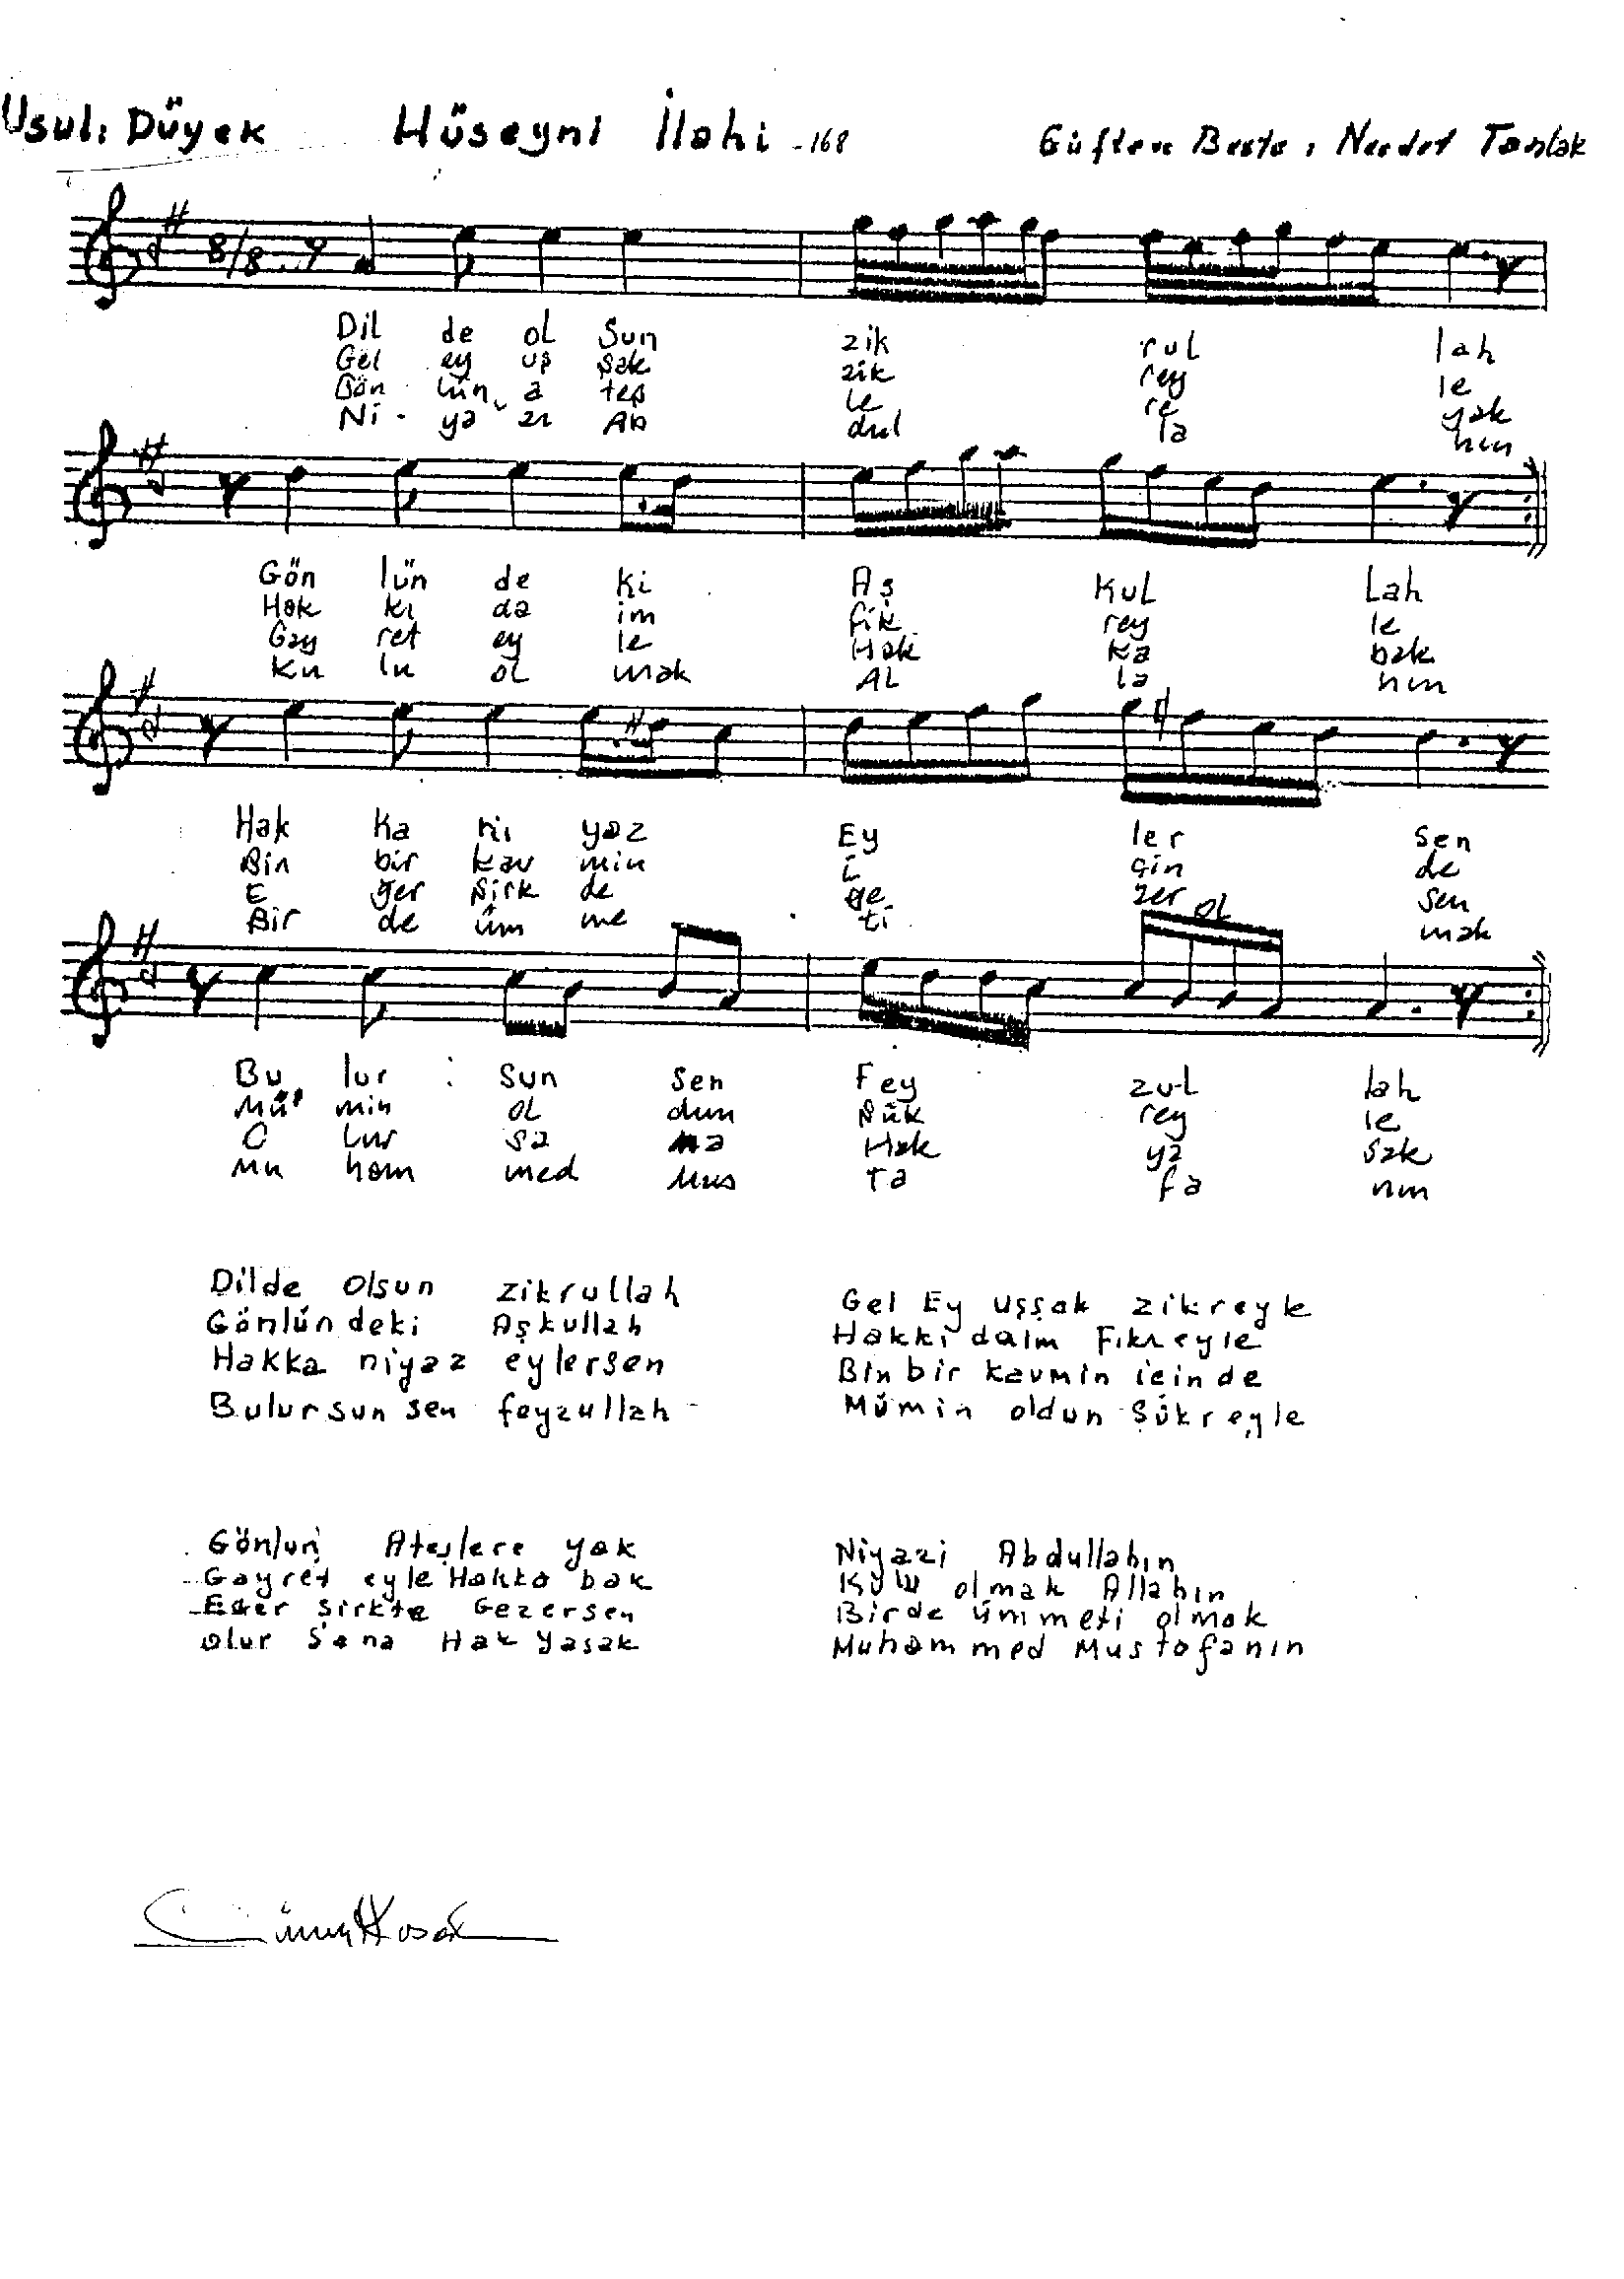 Usul: Düyek Hüseyni İlahi -168 Güfte ve Beste : Necdet Tanlak
8/8
Dil de ol Sun zik rul lah
Gel ey uş şak zik rey le
Gön lün a teş le re yak
Ni - ya zı Ab dul la hın
Gön lün de ki Aş kul Lah
Hak kı da im fik rey le
Gay ret ey le Hak ka bak
Ku lu ol mak AL la hın
Hak ka ni yaz Ey ler sen
Bin bir kav min i çin de
E ğer Şirk de ge zer sen
Bir de üm me ti OL mak
Bu lur sun sen Fey zul lah
Mü' min ol dun Şük rey le
O lur sa na Hak ya sak
Mu ham med Mus ta fa nın
Dilde olsun zikrullah
Gönlündeki Aşkullah
Hakka niyaz eylersen
Bulursun sen feyzullah
Gel Ey uşşak zikreyle
Hakki daim Fikreyle
Bin bir kavmin icinde
Mümin oldun Şükreyle
Gönlün Ateşlere yak
Gayret eyle Hakka bak
Eğer şirkte Gezersen
olur Sana Hak yasak
Niyazi Abdullahın
Kulu olmak Allahın
Birde ümmeti olmak
Muhammed Mustafanın